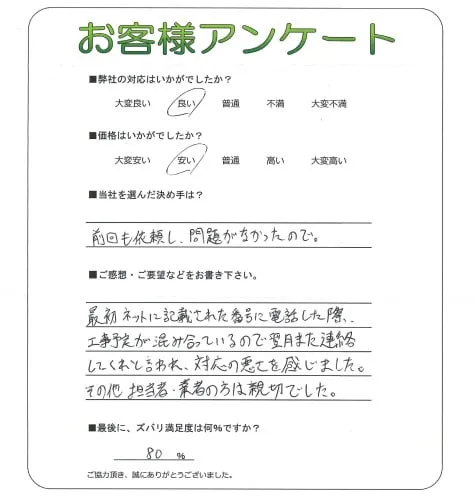 お客様アンケート
■弊社の対応はいかがでしたか?
大変良い 良い 普通 不満 大変不満
■価格はいかがでしたか?
大変安い 安い 普通 高い 大変高い
■当社を選んだ決め手は?
前回も依頼し、問題がなかったので。
■ご感想・ご要望などをお書き下さい。
最初ネットに記載された番号に電話した際、
工事予定が混み合っているので翌月また連絡
してくれと言われ、対応の悪さを感じました。
その他担当者・業者の方は親切でした。
■最後に、ズバリ満足度は何%ですか?
80 %
ご協力頂き、誠にありがとうございました。